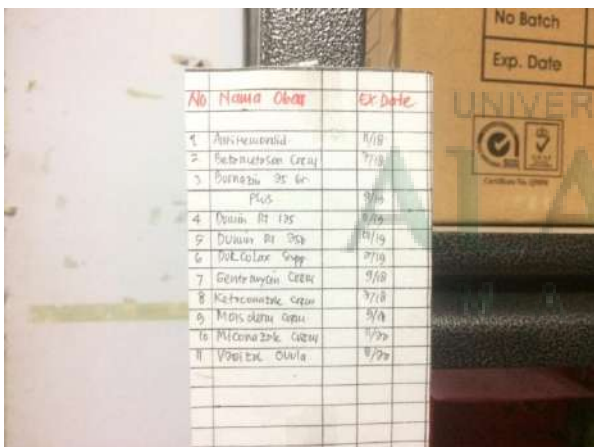 No Batch
Exp. Date
UNIVER
No Nama Obat Ex Date
1 Antihemoroid 11/18
2 Betametason Cream 7/18
3 Burnazin 35 Gr
Plus 9/19
4 Dumin Rt 125
5 Dumin Rt 250
6 Dulcolax Supp
7 Gentamycin Cream 9/18
8 Ketoconazole Cream
9
10 Miconazole Cream 11/20
11 Ovula 11/20